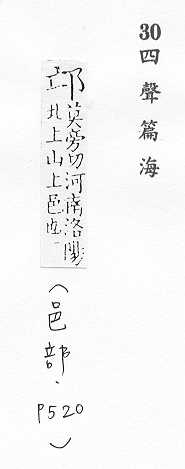 30 四聲篇海
邙 莫旁切河南洛陽
北上山上邑也
(邑部.P520)